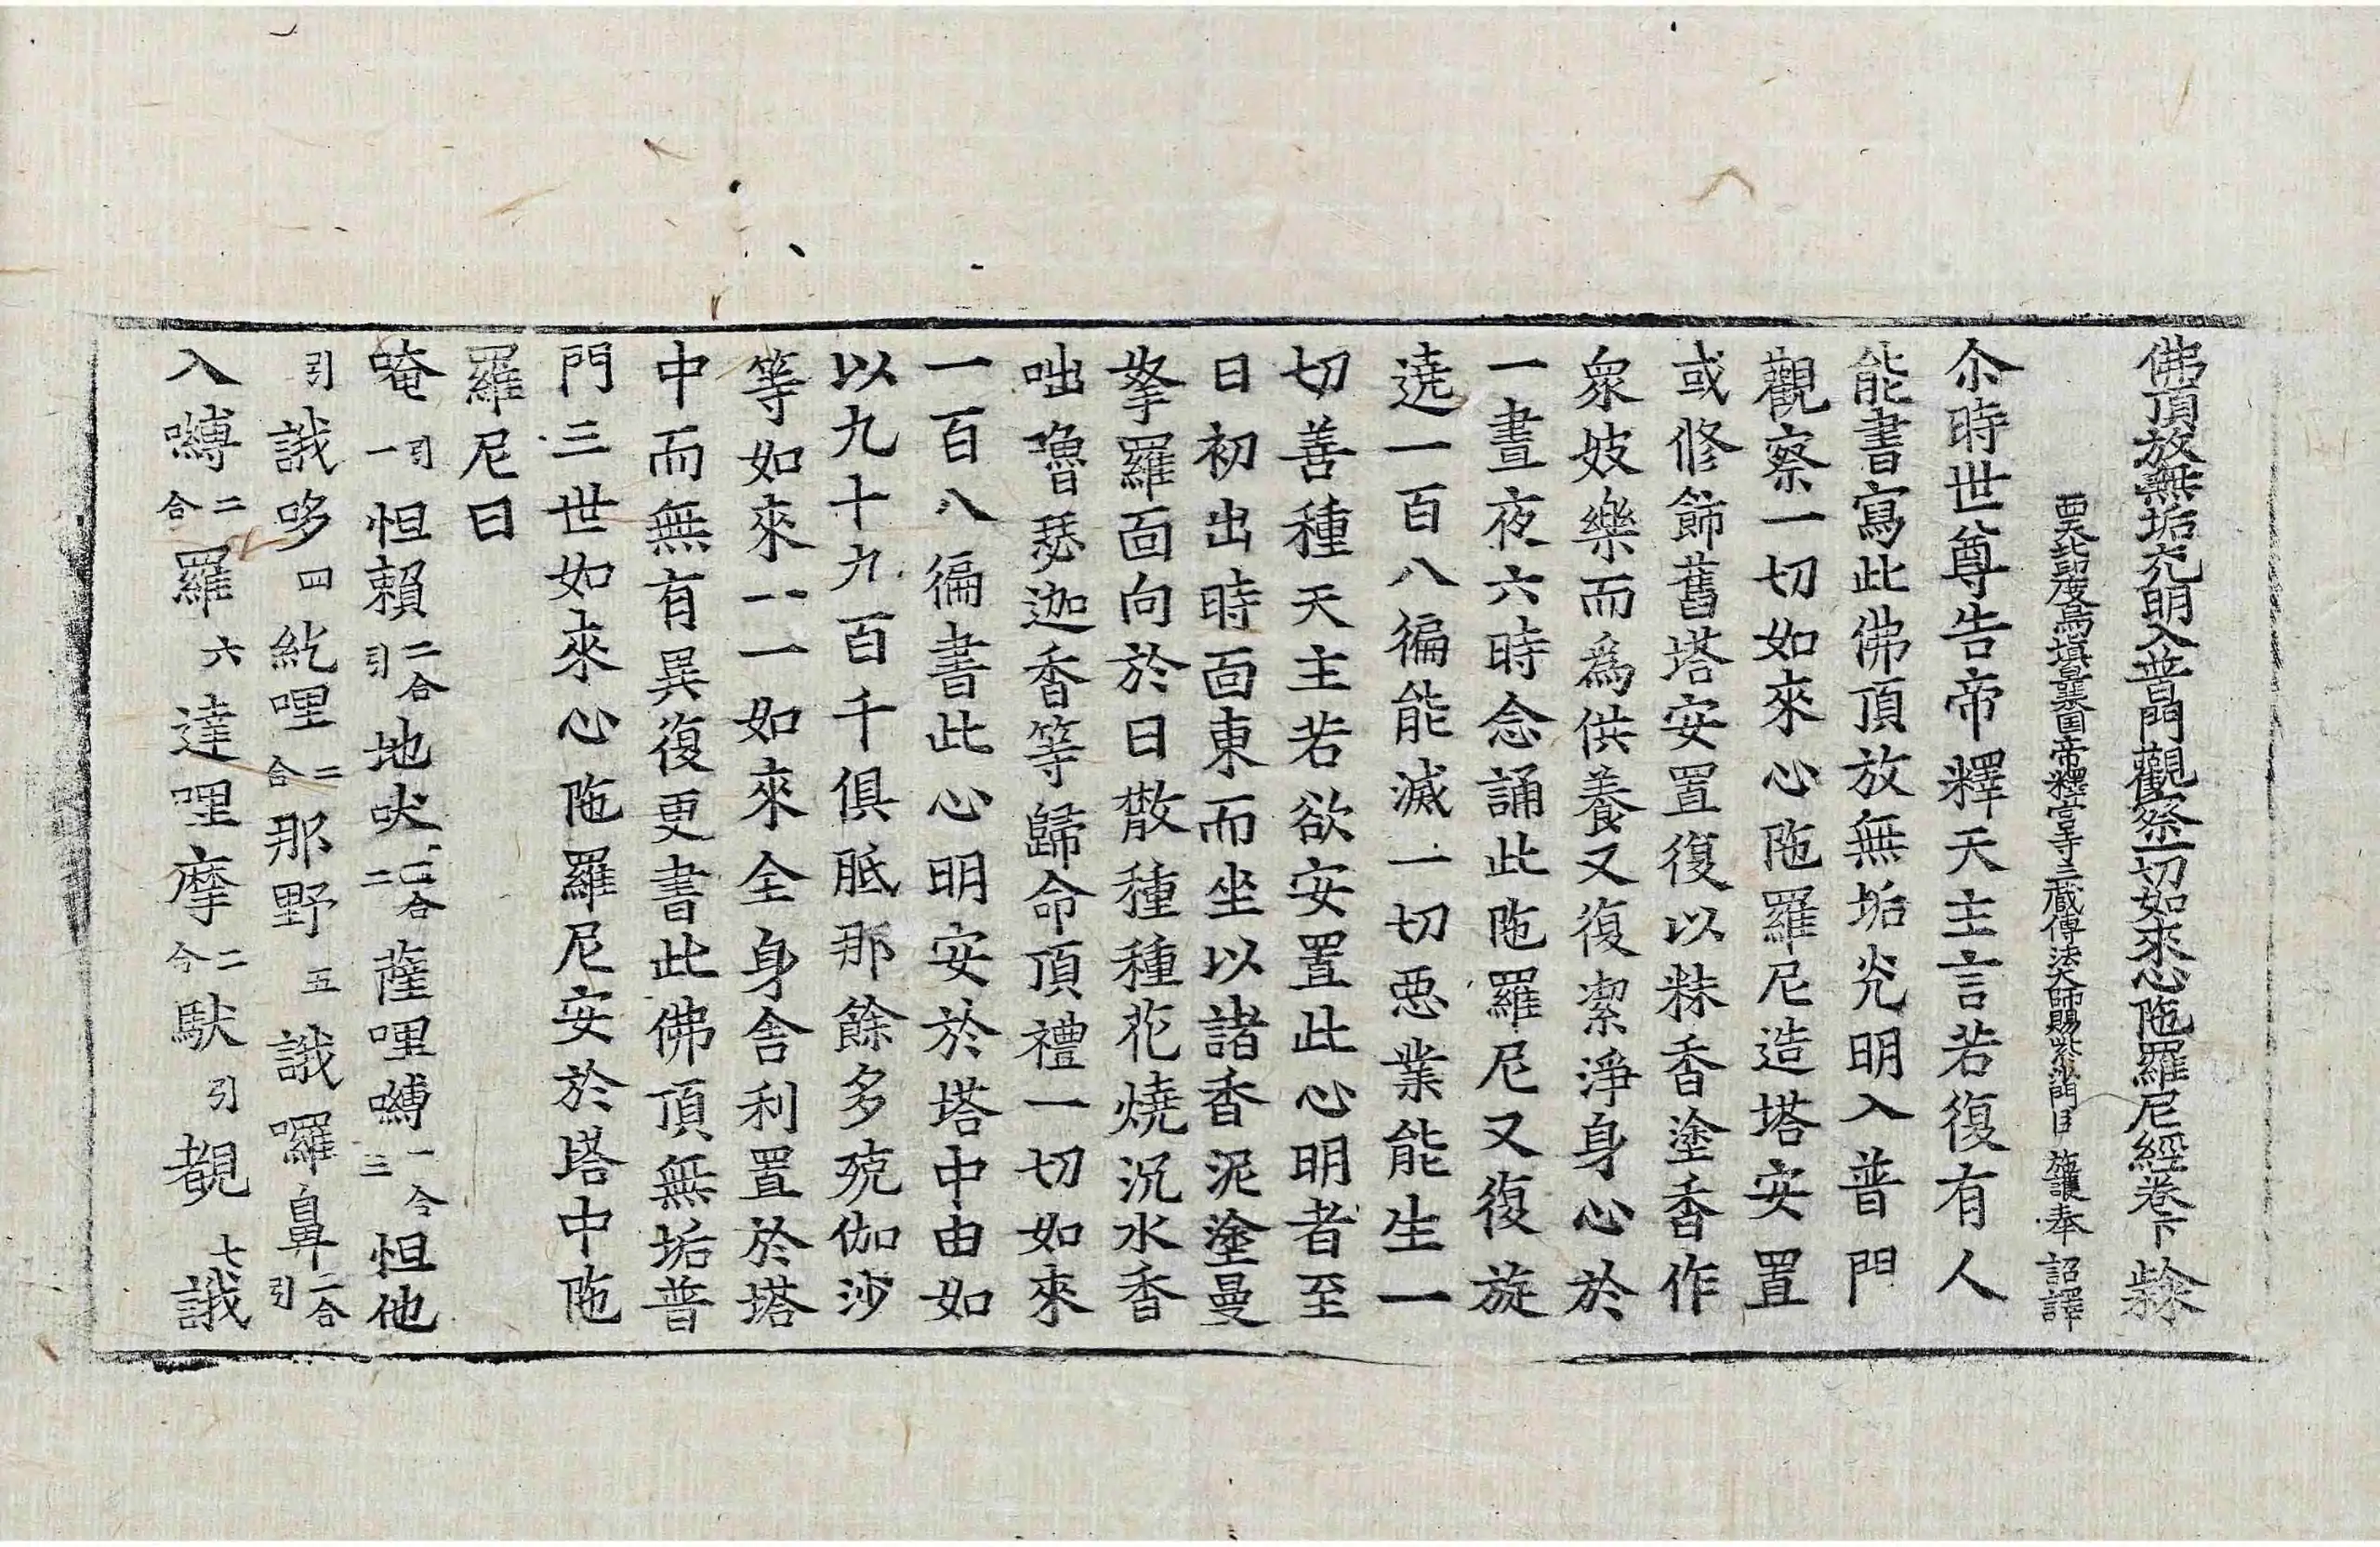 佛頂放無垢光明入普門觀察一切如來心陁羅尼經卷下 𥿄
西天北印度烏塡曩國帝釋宮寺三藏傳法大師賜紫沙門臣 施護奉 詔譯
尒時世尊告帝釋天主言若復有人
能書寫此佛頂放無垢光明入普門
觀察一切如來心陁羅尼造塔安置
或修飾舊塔安置復以粖香塗香作
衆妓樂而爲供養又復潔淨身心於
一晝夜六時念誦此陁羅尼又復旋
遶一百八徧能滅一切惡業能生一
切善種天主若欲安置此心明者至
日初出時面東而坐以諸香泥塗曼
拏羅面向於日散種種花燒沉水香
咄嚕瑟迦香等歸命頂禮一切如來
一百八徧書此心明安於塔中由如
以九十九百千俱胝那餘多殑伽沙
等如來一一如來全身舍利置於塔
中而無有異復更書此佛頂無垢普
門三世如來心陁羅尼安於塔中陁
羅尼曰
唵引一怛賴二合引地吠二合二薩哩嚩一合三怛他
引誐哆四紇哩二合那野五誐囉鼻二合引
入嚩二合羅六達哩摩二合馱引覩七誐